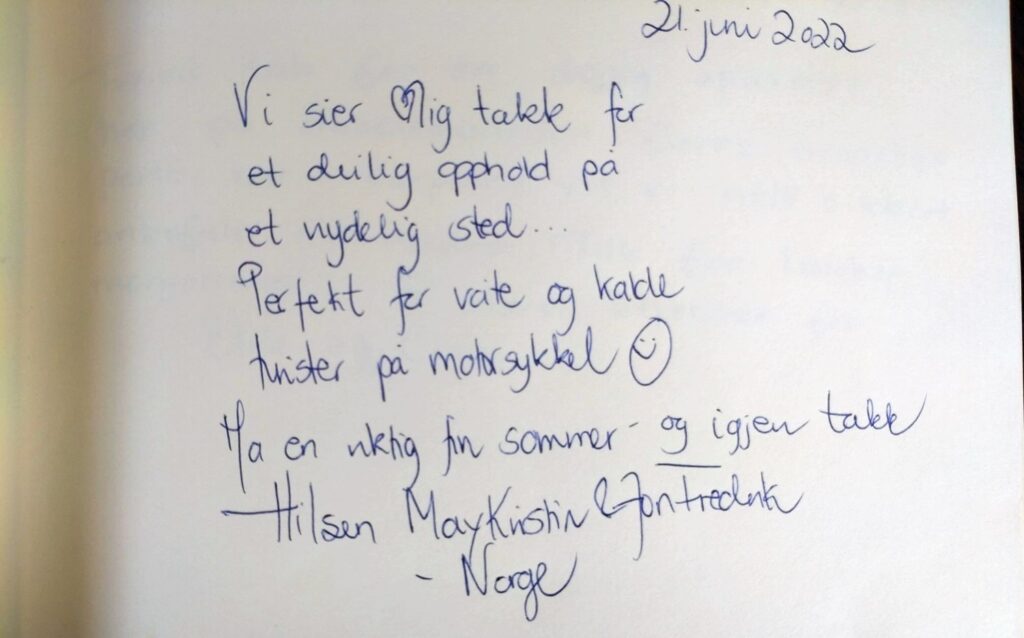 21. juni 2022
Vi sier ♡lig takk for
et deilig opphold på
et nydelig sted...
Perfekt for våte og kalde
turister på motorsykkel ☺
Ha en riktig fin sommer - og igjen takk
- Hilsen MayKristin & Jon Fredrik
- Norge